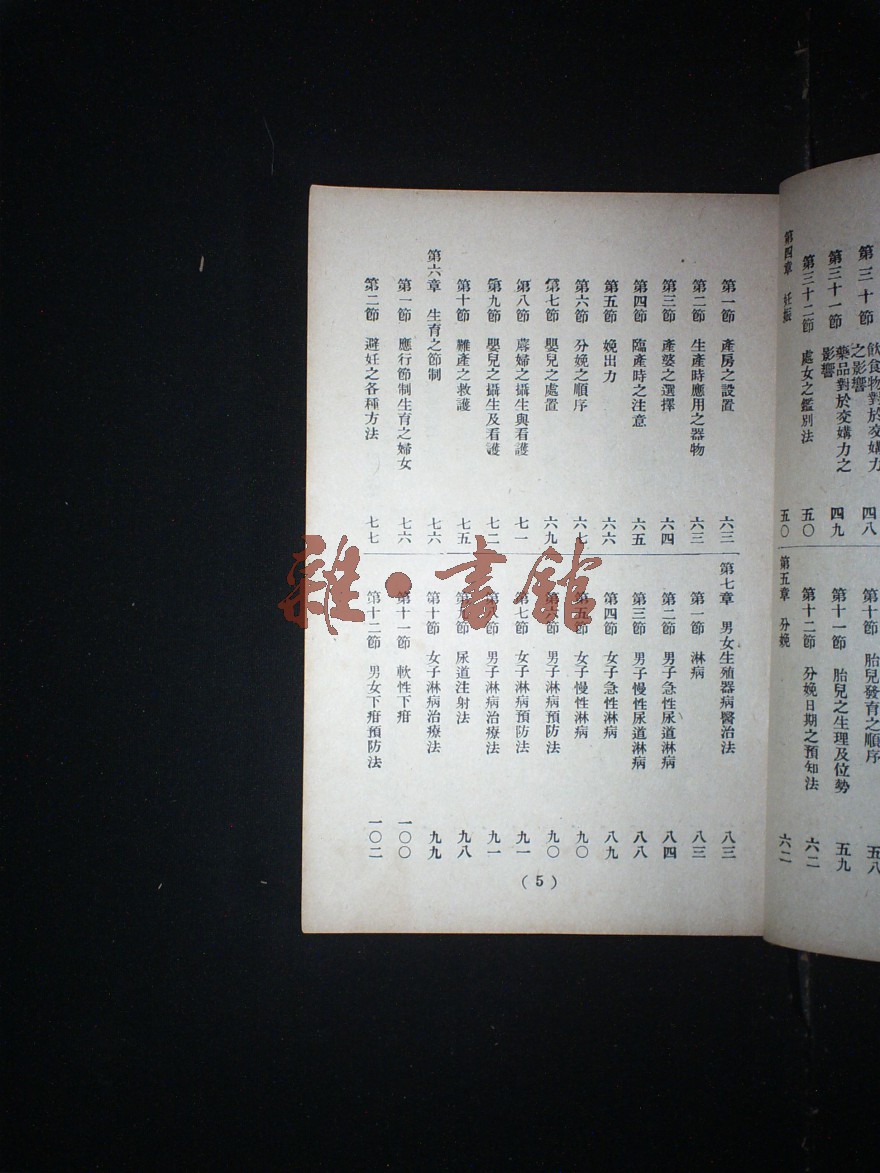 第三十節 飲食物對於交媾力之影響 四八
第三十一節 藥品對於交媾力之影響 四九
第三十二節 處女之鑑別法 五〇
第四章 妊娠 五〇
第十節 胎兒發育之順序 五八
第十一節 胎兒之生理及位勢 五九
第十二節 分娩日期之預知法 六二
第五章 分娩 六二
第一節 產房之設置 六三
第二節 生產時應用之器物 六三
第三節 產婆之選擇 六四
第四節 臨產時之注意 六五
第五節 娩出力 六六
第六節 分娩之順序 六七
第七節 嬰兒之處置 六九
第八節 蓐婦之攝生與看護 七一
第九節 嬰兒之攝生及看護 七二
第十節 難產之救護 七五
第六章 生育之節制 七六
第一節 應行節制生育之婦女 七六
第二節 避妊之各種方法 七七
第七章 男女生殖器病醫治法 八三
第一節 淋病 八三
第二節 男子急性尿道淋病 八四
第三節 男子慢性尿道淋病 八八
第四節 女子急性淋病 八九
第五節 女子慢性淋病 九〇
第六節 男子淋病預防法 九〇
第七節 女子淋病預防法 九一
第八節 男子淋病治療法 九一
第九節 尿道注射法 九八
第十節 女子淋病治療法 九九
第十一節 軟性下疳 一〇〇
第十二節 男女下疳預防法 一〇二
(5)
雜·書館